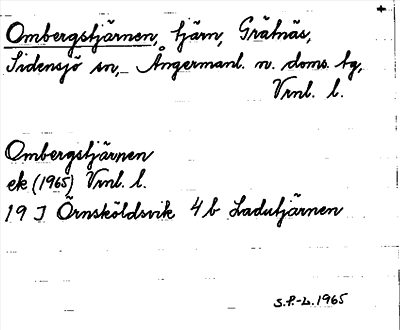 Ombergstjärnen, tjärn, Grätnäs,
Sidensjö sn, Ångermanl. n. doms. tg,
Vrnl. l.
Ombergstjärnen
ek (1965) Vrnl. l.
19 J Örnsköldsvik 4 b Ladutjärnen
S.P.-L. 1965